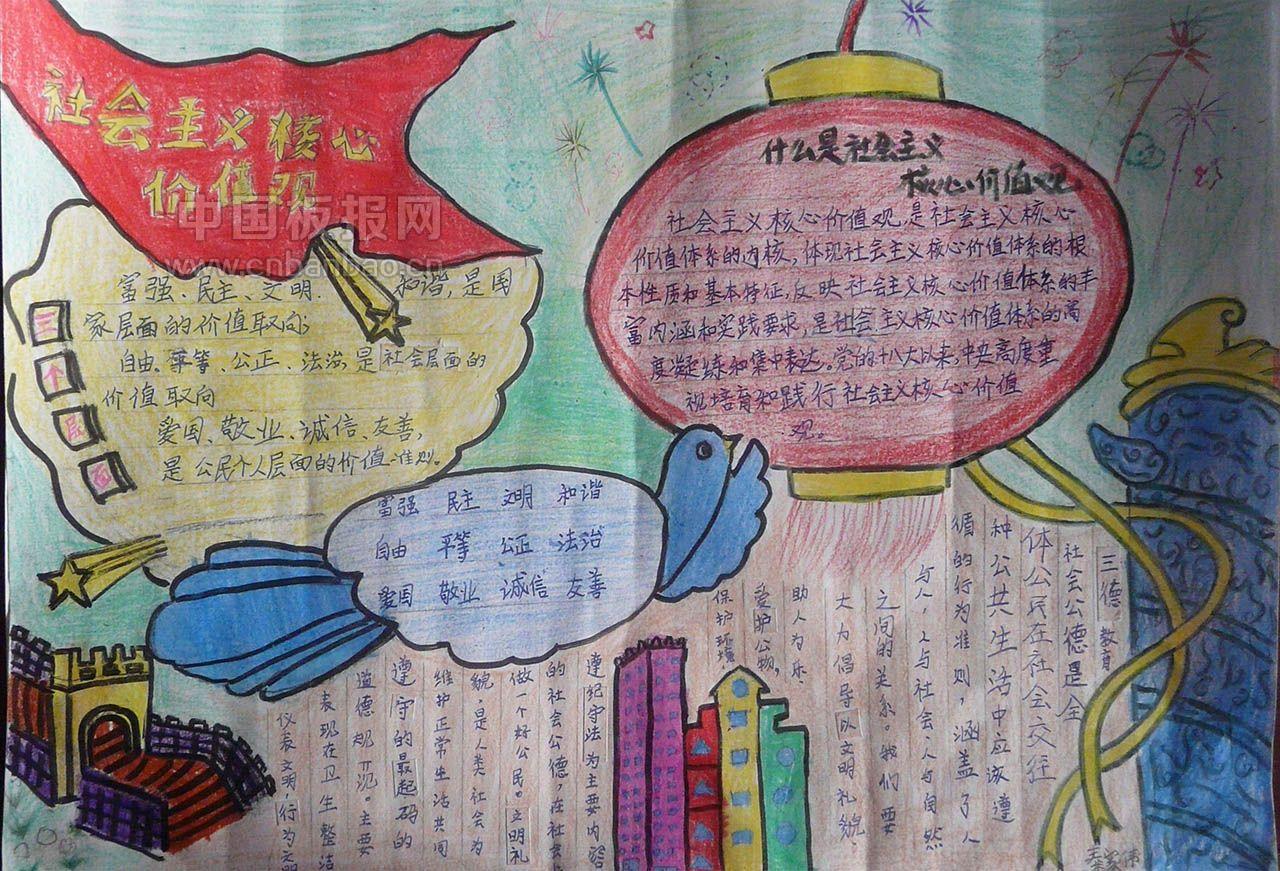 社会主义核心
价值观
中国板报网
www.cnbanbao.cn
三
个
层
面
富强、民主、文明、和谐,是国
家层面的价值取向;
自由、平等、公正、法治,是社会层面的
价值取向
爱国、敬业、诚信、友善,
是公民个人层面的价值准则。
什么是社会主义
核心价值观
社会主义核心价值观,是社会主义核心
价值体系的内核,体现社会主义核心价值体系的根
本性质和基本特征,反映社会主义核心价值体系的丰
富内涵和实践要求,是社会主义核心价值体系的高
度凝练和集中表达。党的十八大以来,中央高度重
视培育和践行社会主义核心价值
观。
富强 民主 文明 和谐
自由 平等 公正 法治
爱国 敬业 诚信 友善
三德教育
社会公德是全
体公民在社会交往
种公共生活中应该遵
循的行为准则,涵盖了人
与人,人与社会、人与自然
之间的关系。我们要
大力倡导以文明礼貌、
助人为乐、
爱护公物,
保护环境、
遵纪守法为主要内容
的社会公德,在社会
做一个好公民。文明礼
貌,是人类社会为
维护正常生活共同
遵守的最起码的
道德规范。主要
表现在卫生整洁
仪表文明,行为文明
秦家伟